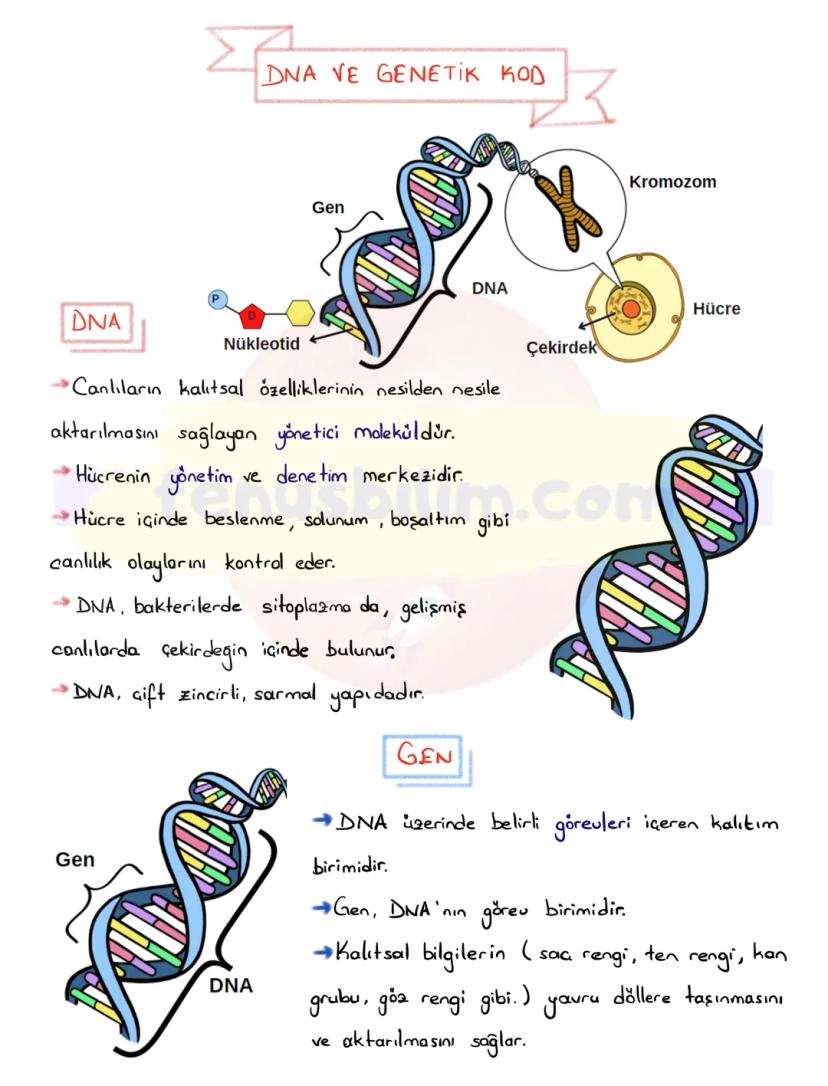 DNA VE GENETİK KOD
Kromozom
Gen
DNA
P
D
Nükleotid
Hücre
Çekirdek
DNA
→ Canlıların kalıtsal özelliklerinin nesilden nesile
aktarılmasını sağlayan yönetici moleküldür.
→ Hücrenin yönetim ve denetim merkezidir.
fenusbilim.com
→ Hücre içinde beslenme, solunum, boşaltım gibi
canlılık olaylarını kontrol eder.
→ DNA, bakterilerde sitoplazma da, gelişmiş
canlılarda çekirdeğin içinde bulunur.
→ DNA, çift zincirli, sarmal yapıdadır.
GEN
Gen
DNA
→ DNA üzerinde belirli görevleri içeren kalıtım
birimidir.
→ Gen, DNA'nın görev birimidir.
→ Kalıtsal bilgilerin ( saç rengi, ten rengi, kan
grubu, göz rengi gibi.) yavru döllere taşınmasını
ve aktarılmasını sağlar.